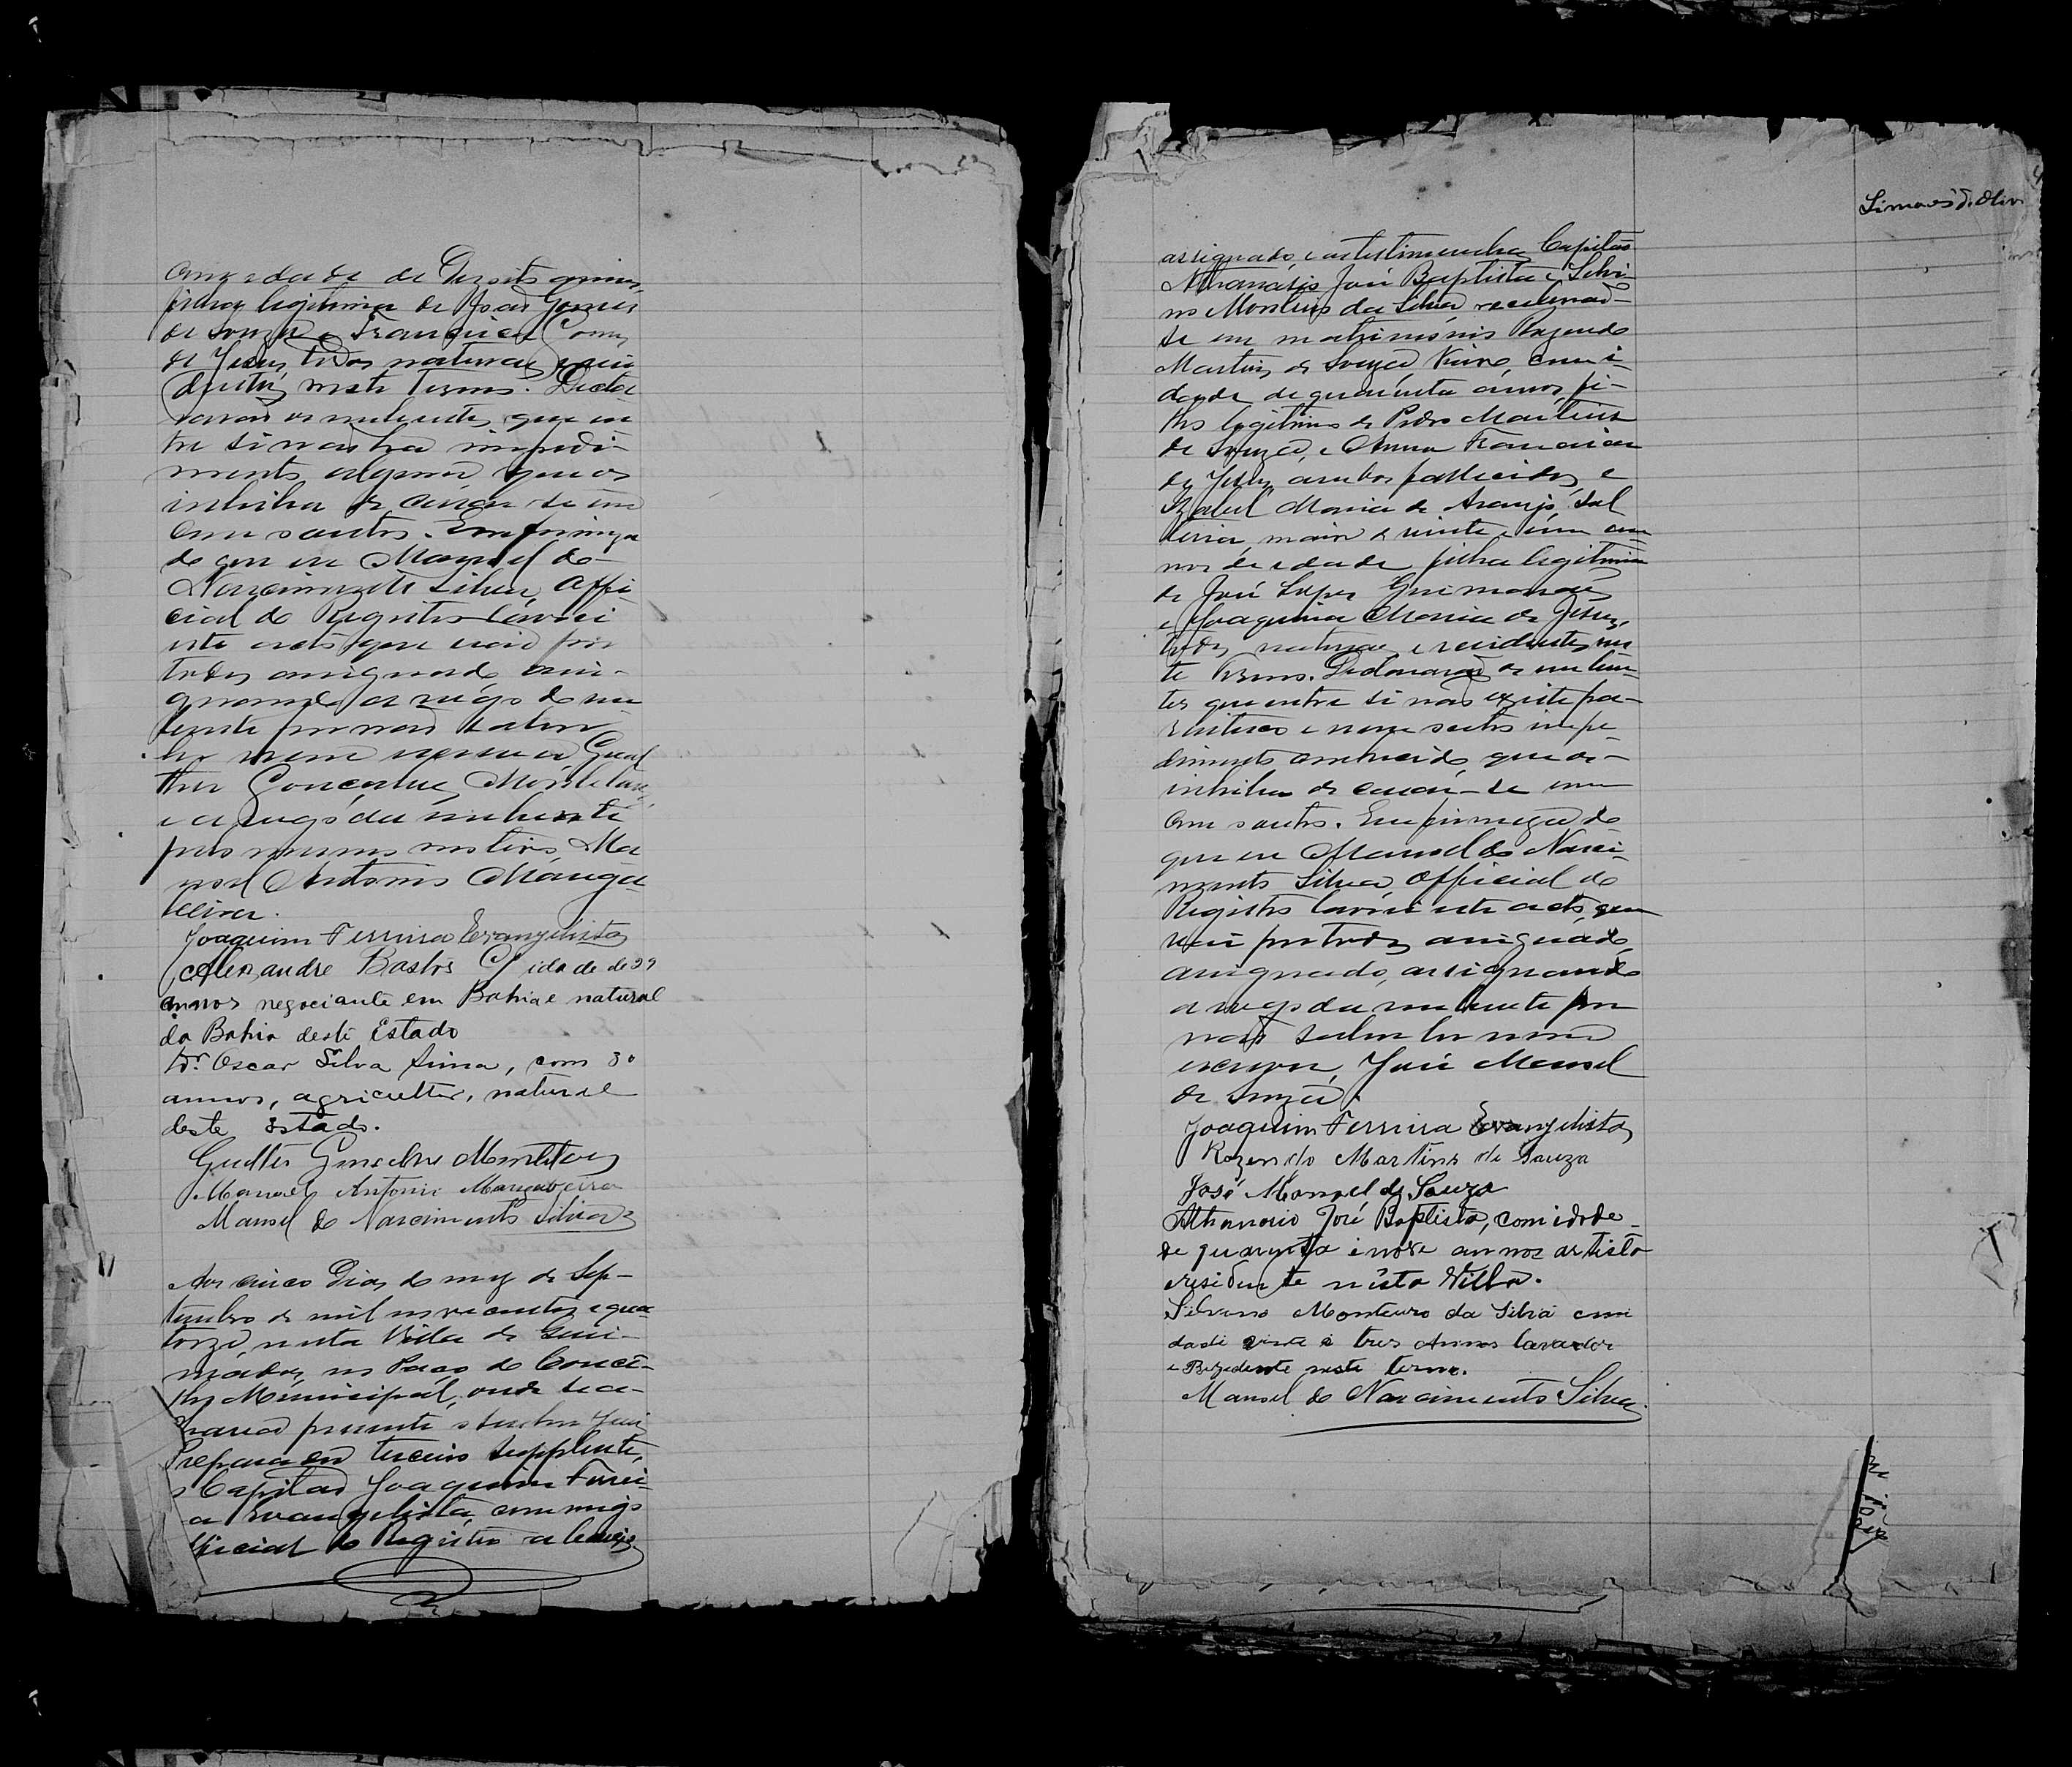 com edade de Dezoito annos,
filha legitima de João Gomes
de Souza e Francisca Gomes
de Jesus, todos naturaes e resi
dentes neste Termo. Decla
rarão os nubentes, que en
tre si não ha impedi
mento algum que os
inhiba de casar-se um
com o outro. Em firmeza
do que eu Manoel do
Nascimento Silva, Offi
cial do Registro lavrei
este acto que vai por
todos assignado assi-
gnando a rogo do nu
bente por não saber
ler nem escrever Guel
ther Gonçalves Monteiro,
e a rogo da nubente
pelo mesmo motivo, Ma
noel Antonio Manga
beira.
Joaquim Ferreira Evangelista
Alexandre Bastos idade de 29
annos negociante em Bahia e natural
da Bahia deste Estado
Dr. Oscar Silva Lima, com 30
annos, agricultor, natural
deste Estado.
Manoel Antonio Mangabeira
Manoel do Nascimento Silva
Aos cinco Dias do mez de Sep-
tembro de mil novecentos e qua
torze, nesta Villa de
no Paço do Conce-
lho Municipal, onde se a-
chava presente o Senhor Juiz
Preparador terceiro Supplente,
o Capitão Joaquim Ferrei-
a Evangelista, commigo
fficial do Registro abaixo
Simões d. Oliv
assignado, e as testimunhas Capitão
Athanasio José Baptista e Silvi-
no Monteiro da Silva receberão-
se em matrimonio Rozendo
Martins de Souza, Viuvo, com i-
dade de quarenta annos, fi-
lho legitimo de Pedro Martins
de Souza, e Anna Francisca
de Jesus, ambos fallecidos, e
Izabel Maria de Araujo, Sol
teira, maior de vinte e um an
nos de edade, filha legitima
de José Lopes Guimarães
e Joaquina Maria de Jesus,
todos naturaes e residentes nes
te Termo. Declararão os nuben-
tes que entre si não existe pa-
rentesco e nem outro impe
dimento conhecido que os
inhiba de casar-se um
com o outro. Em firmeza do
que eu Manoel do Nasci-
mento Silva, Official do
Registro lavrei este acto, que
vai por todos assignado,
assignado, assignando
a rogo da nubente por
não saber ler nem
escrever, José Manoel
de Souza.
Joaquim Ferreira Evangelista
Rozendo Martins de Souza
José Manoel de Souza
Athanasio José Baptista, com idade
de quarenta e nove annos artista
residente nesta Villa.
Silvino Monteiro da Silva com
dade vinte e tres Annos lavrador
e Rezedente neste termo.
Manoel do Nascimento Silva